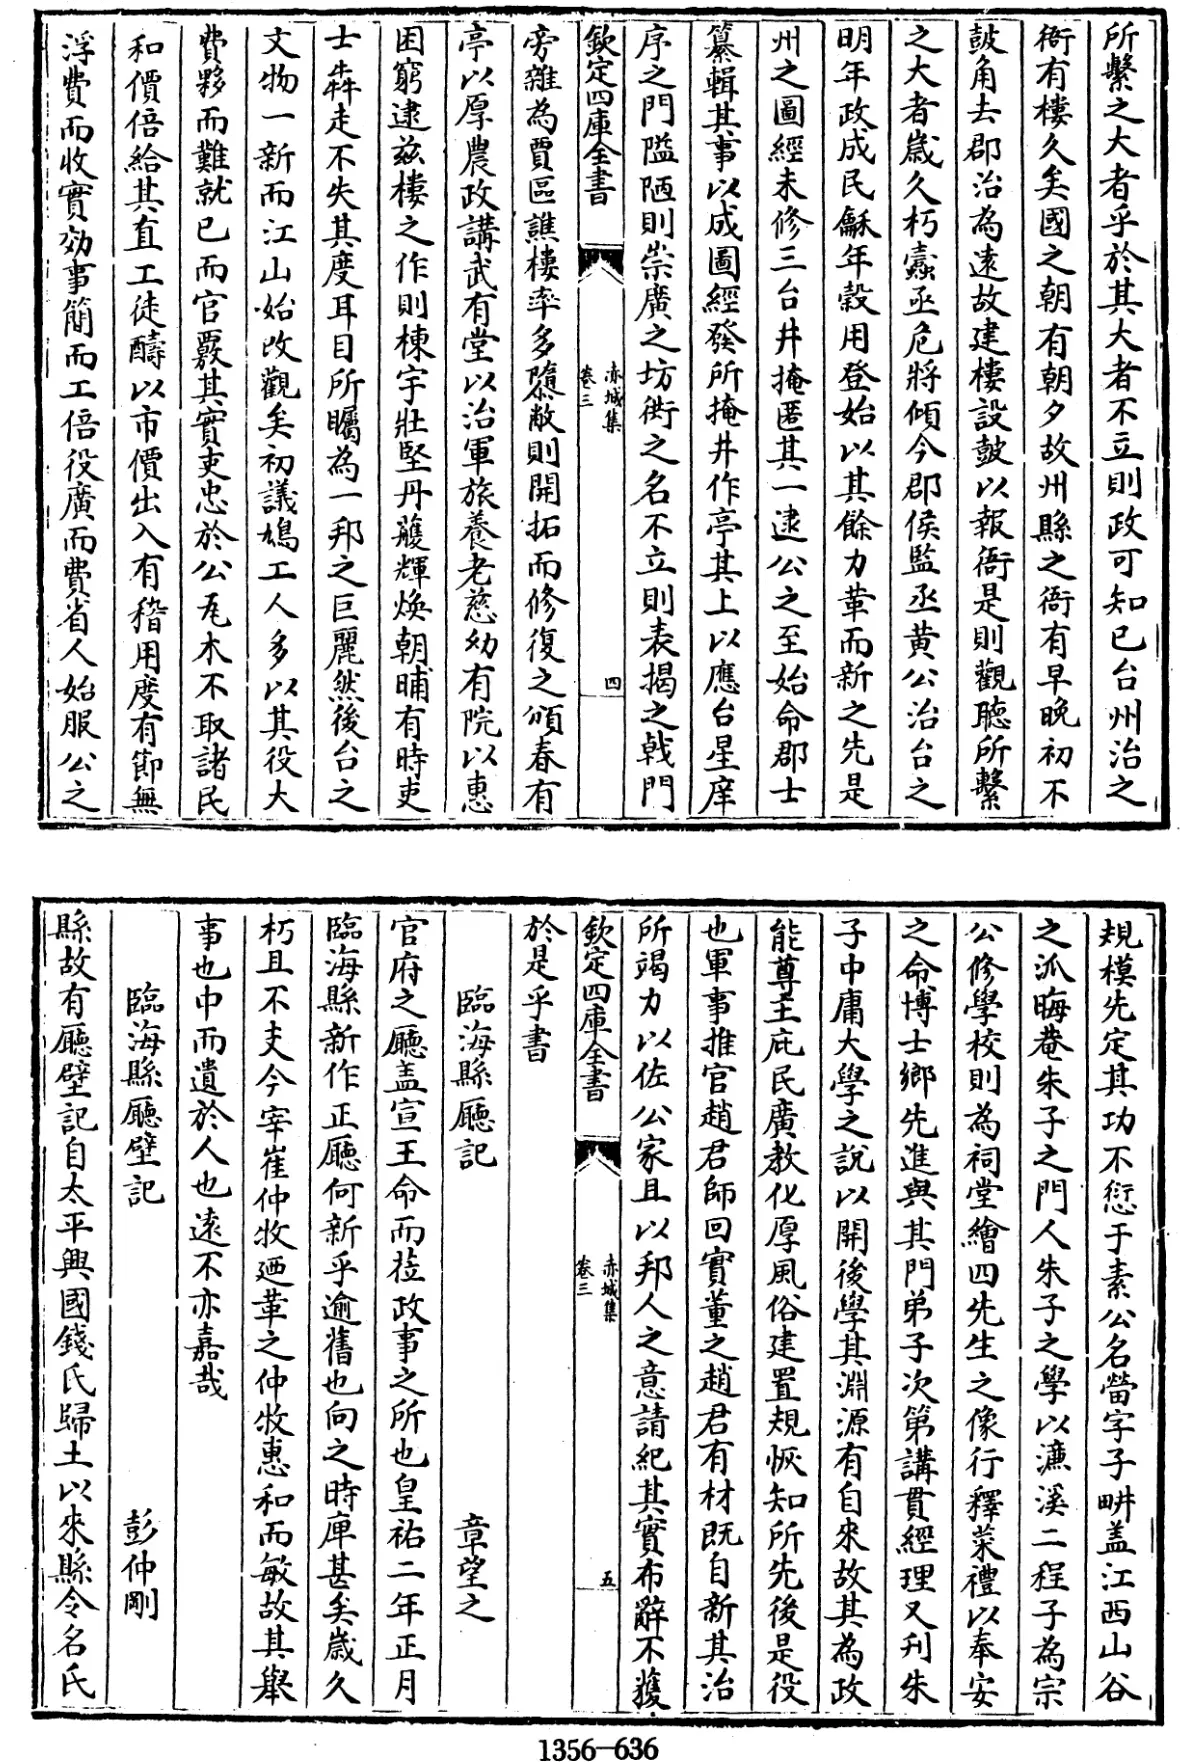 所繫之大者乎於其大者不立則政可知已台州治之
衙有樓久矣國之朝有朝夕故州縣之衙有早晚初不
鼓角去郡治為遠故建樓設鼓以報衙是則觀聽所繫
之大者歲久朽蠹丞危將傾今郡侯監丞黄公治台之
明年政成民龢年穀用登始以其餘力葺而新之先是
州之圖經未修三台井掩匿其一逮公之至始命郡士
纂輯其事以成圖經發所掩井作亭其上以應台星庠
序之門隘陋則崇廣之坊衖之名不立則表揭之戟門
欽定四庫全書
赤城集
卷三
四
旁雜為賈區譙樓率多隳敝則開拓而修復之頒春有
亭以厚農政講武有堂以治軍旅養老慈幼有院以惠
困窮逮兹樓之作則棟宇壯堅丹雘輝煥朝晡有時吏
士犇走不失其度耳目所矚為一邦之巨麗然後台之
文物一新而江山始改觀矣初議鳩工人多以其役大
費夥而難就已而官覈其實吏忠於公瓦木不取諸民
和價倍給其直工徒醻以市價出入有稽用度有節無
浮費而收實効事簡而工倍役廣而費省人始服公之
規模先定其功不愆于素公名㽦字子畊盖江西山谷
之派晦菴朱子之門人朱子之學以濂溪二程子為宗
公修學校則為祠堂繪四先生之像行釋菜禮以奉安
之命博士鄉先進與其門弟子次第講貫經理又刋朱
子中庸大學之說以開後學其淵源有自來故其為政
能尊主庇民廣教化厚風俗建置規恢知所先後是役
也軍事推官趙君師回實董之趙君有材既自新其治
所竭力以佐公家且以邦人之意請紀其實布辭不獲
欽定四庫全書
赤城集
卷三
五
於是乎書
臨海縣廳記 章望之
官府之廳盖宣王命而莅政事之所也皇祐二年正月
臨海縣新作正廳何新乎逾舊也向之時庳甚矣歲久
朽且不支今宰崔仲牧廼葺之仲牧惠和而敏故其舉
事也中而遺於人也遠不亦嘉哉
臨海縣廳壁記 彭仲剛
縣故有廳壁記自太平興國錢氏歸土以來縣令名氏
1356-636